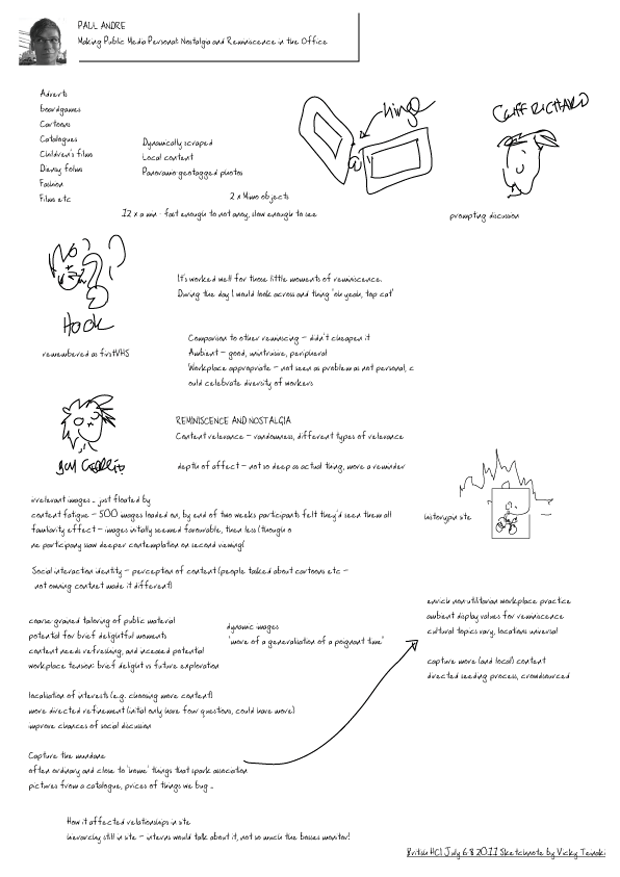 PAUL ANDRE
Making Public Media Personal: Nostalgia and Reminiscence in the Office
Adverts
boardgames
Cartoons
Catalogues
Children's films
Disney films
Fashion
Films etc
Dynamically scraped
Local content
Panoramio geotagged photos
hinge
CLIFF RICHARD
2 x Mimo objects
12 x a min - fast enough to not annoy, slow enough to see
prompting discussion
Hook
remembered as first VHS
It's worked well for those little moments of reminiscence.
During the day I would look across and thing 'oh yeah, top cat'
Comparison to other reminiscing – didn't cheapen it
Ambient – good, unintrusive, peripheral
Workplace appropriate – not seen as problem as not personal, c
ould celebrate diversity of workers
REMINISCENCE AND NOSTALGIA
Content relevance – randomness, different types of relevance
depth of affect – not so deep as actual thing, more a reminder
irrelevant images .. just floated by
content fatigue – 500 images loaded on, by end of two weeks participants felt they'd seen them all
familiarity effect – images initially seemed favourable, then less (through o
ne participany slow deeper contemplation on second viewing)
historypin site
Social interaction identity – perception of content (people talked about cartoons etc –
not owning contact made it different)
coarse grained tailoring of public material
potential for brief delightful moments
content needs refreshing, and increased potential
workplace tension: brief delight vs future exploration
dynamic images
'more of a generalisation of a poignant time'
enrich non utilitarian workplace practice
ambient display values for reminiscence
cultural topics vary, locations universal
capture more (and local) content
directed seeding process, crowdsourced
localisation of interests (e.g. choosing more content)
more directed refinement (initial only have four questions, could have more)
improve chances of social discussion
Capture the mundane
often ordinary and close to 'home' things that spark association
pictures from a catalogue, prices of things we bug ..
How it affected relationships in site
hierarchy still in site – interns would talk about it, not so much the bosses monitor!
British HCI July 6 8 2011 Sketchnote by Vicky Teinaki